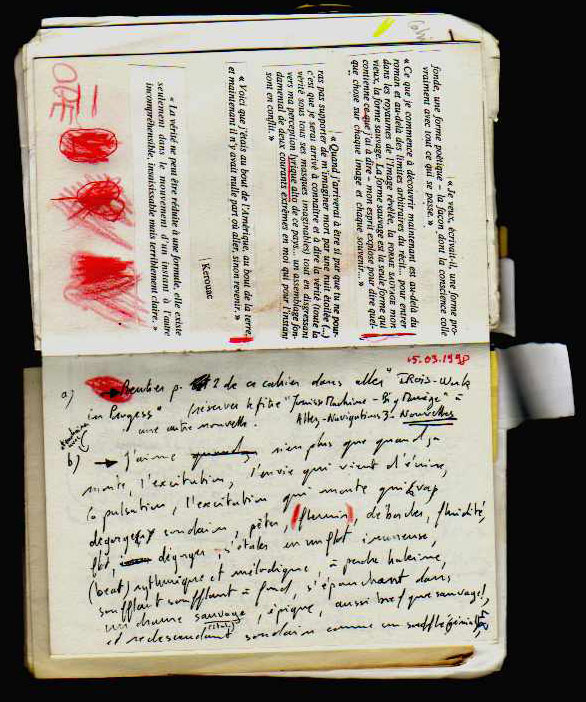 « Je veux, écrivait-il, une forme pro-
fonde, une forme poétique – la façon dont la conscience colle
vraiment avec tout ce qui se passe. »
« Ce que je commence à découvrir maintenant est au-delà du
roman et au-delà des limites arbitraires du récit... pour entrer
dans les royaumes de l'Image révélée, la FORME SAUVAGE mon
vieux, la forme sauvage. La forme sauvage est la seule forme qui
contienne ce que j'ai à dire – mon esprit explose pour dire quel-
que chose sur chaque image et chaque souvenir... »
« Quand j'arriverai à être si pur que tu ne pour-
ras pas supporter de m'imaginer mort par une nuit étoilée (...)
c'est que je serai arrivé à connaître et à dire la vérité (toute la
vérité sous tous ses masques imaginables) tout en digressant
vers ma perception lyrique alto de ce pays... un assemblage fon-
damental de deux courants extrêmes en moi qui pour l'instant
sont en conflit. »
« Voici que j'étais au bout de l'Amérique, au bout de la terre,
et maintenant il n'y avait nulle part où aller, sinon revenir. »
Kerouac
« La vérité ne peut être réduite à une formule, elle existe
seulement dans le mouvement d'un instant à l'autre
incompréhensible, insaisissable mais terriblement claire. »
ODE
15.03.1998
a) p. 2 de ce cahier dans aller " TROIS-Work
in Progess" (réserver le titre
Allez-Navigations 3 - Nouvelles
une autre nouvelle.
b) J'aime rien plus que quand ça
monte, l'excitation, l'envie qui vient d'écrire,
la pulsation, l'excitation qui monte
soudain, péter, déborder, fluidité,
flot, dégorger, s'étaler en un flot immense,
(beat) rythmique et mélodique, à perdre haleine,
soufflant soufflant à fond, s'épanchant dans
un chaume sauvage, épique, aussi bref que sauvage!,
et redescendant soudain comme un soufflé